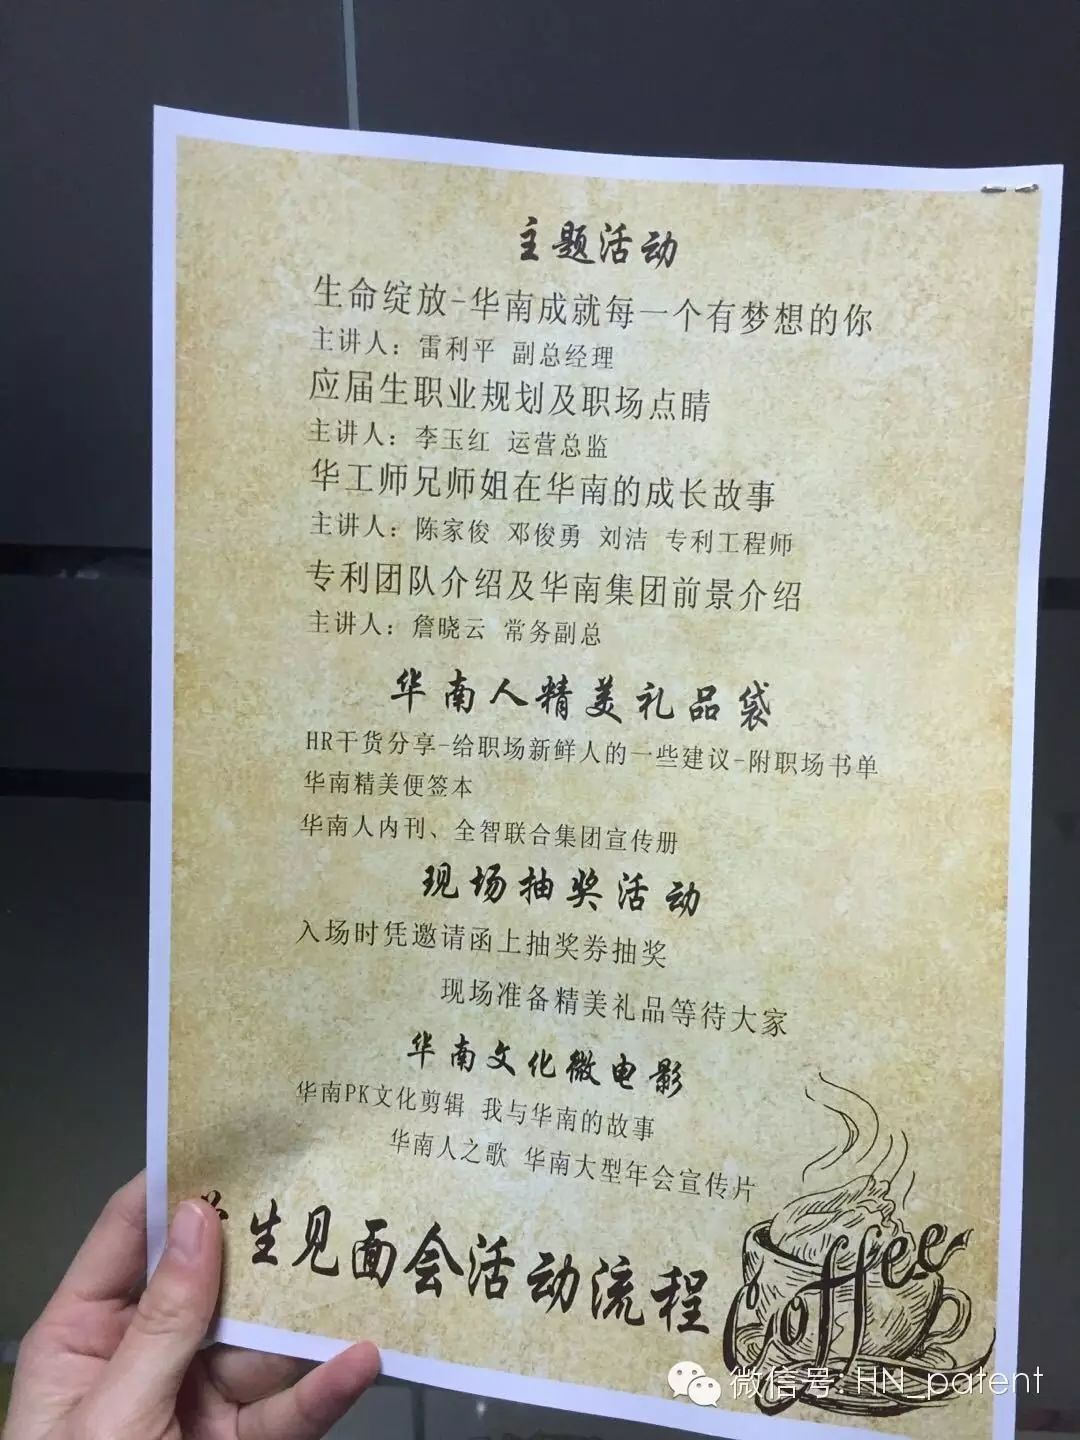 主题活动
生命绽放-华南成就每一个有梦想的你
主讲人：雷利平 副总经理
应届生职业规划及职场点睛
主讲人：李玉红 运营总监
华工师兄师姐在华南的成长故事
主讲人：陈家俊 邓俊勇 刘洁 专利工程师
专利团队介绍及华南集团前景介绍
主讲人：詹晓云 常务副总
华南人精美礼品袋
HR干货分享-给职场新鲜人的一些建议-附职场书单
华南精美便签本
华南人内刊、全智联合集团宣传册
现场抽奖活动
入场时凭邀请函上抽奖券抽奖
现场准备精美礼品等待大家
华南文化微电影
华南PK文化剪辑 我与华南的故事
华南人之歌 华南大型年会宣传片
生见面会活动流程
Coffee
微信号: HN_patent